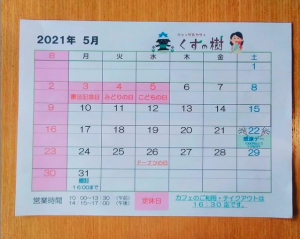 2021年 5月
くすの樹
日 月 火 水 木 金 土
1
2 3 4 5 6 7 8
憲法記念日 みどりの日 こどもの日
9 10 11 12 13 14 15
16 17 18 19 20 21 22
感謝デー
23 24 25 26 27 28 29
30 31
15:00まで
営業時間 10:00~13:30 (午前)
14:15~17:00 (午後)
定休日
カフェのご利用・テイクアウトは
16:30迄です。